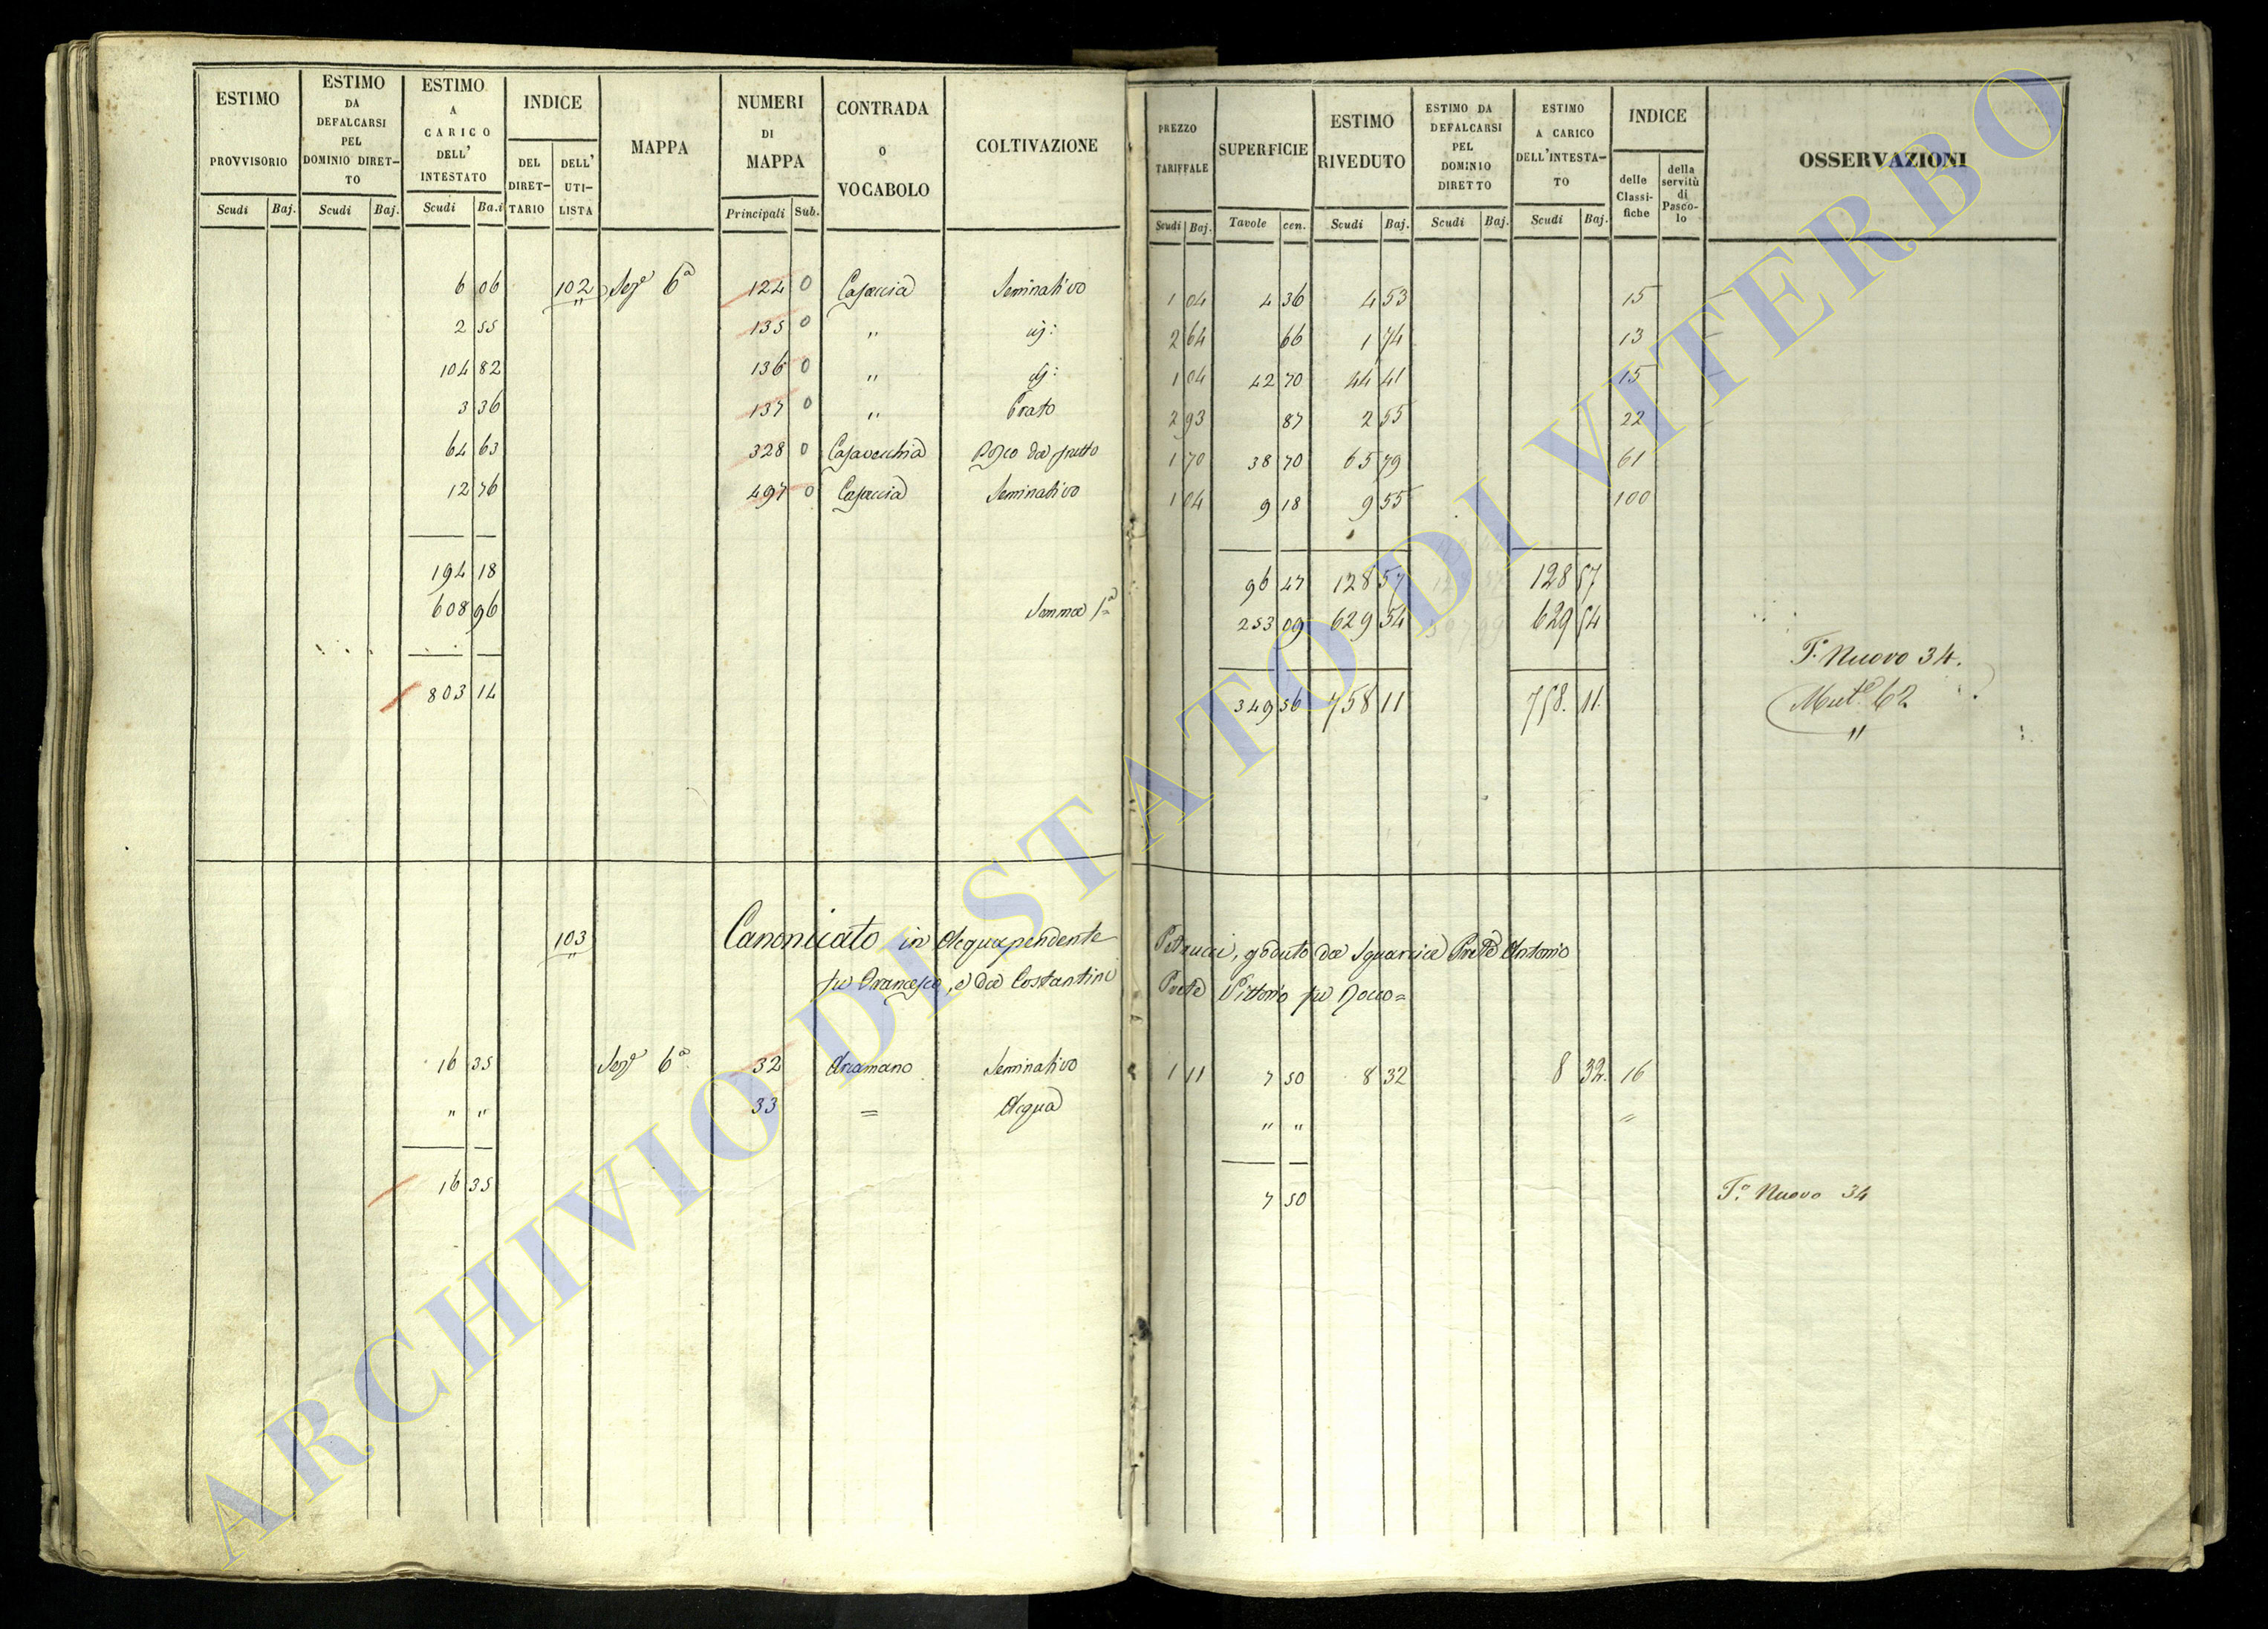 ESTIMO PROVVISORIO Scudi Baj.
ESTIMO DA DEFALCARSI PEL DOMINIO DIRET-TO Scudi Baj.
ESTIMO A CARICO DELL' INTESTATO Scudi Ba.i
INDICE DEL DIRET-TARIO DELL' UTI-LISTA
MAPPA
NUMERI DI MAPPA Principali Sub.
CONTRADA O VOCABOLO
COLTIVAZIONE
PREZZO TARIFFALE Scudi Baj.
SUPERFICIE Tavole cen.
ESTIMO RIVEDUTO Scudi Baj.
ESTIMO DA DEFALCARSI PEL DOMINIO DIRETTO Scudi Baj.
ESTIMO A CARICO DELL'INTESTA-TO Scudi Baj.
INDICE delle Classi-fiche della servitù di Pasco-lo
OSSERVAZIONI
6 06 102 Sez.e 6a 124 0 Casaccia Seminativo 1 04 4 36 4 53 15
2 55 135 0 " id: 2 64 66 1 74 13
104 82 136 0 " id: 1 04 42 70 44 41 15
3 36 137 0 " Prato 2 93 87 2 55 22
64 63 328 0 Casavecchia Bosco da frutto 1 70 38 70 65 79 61
12 76 497 0 Casaccia Seminativo 1 04 9 18 9 55 100
194 18 96 47 128 57 128 57
608 96 Somma 1a 253 09 629 54 629 54
F.o Nuovo 34.
803 14 349 56 758 11 758. 11. Mut.e 62
"
103 Canonicato in Acquapendente Petrucci, goduto da Sguarcia Prete Antonio
fu Francesco, e da Costantini Prete Vittorio fu Rocco=
16 35 Sez.e 6a 32 Aramano Seminativo 1 11 7 50 8 32 8 32. 16
" " 33 = Acqua " " "
16 35 7 50 F.o Nuovo 34
ARCHIVIO DI STATO DI VITERBO